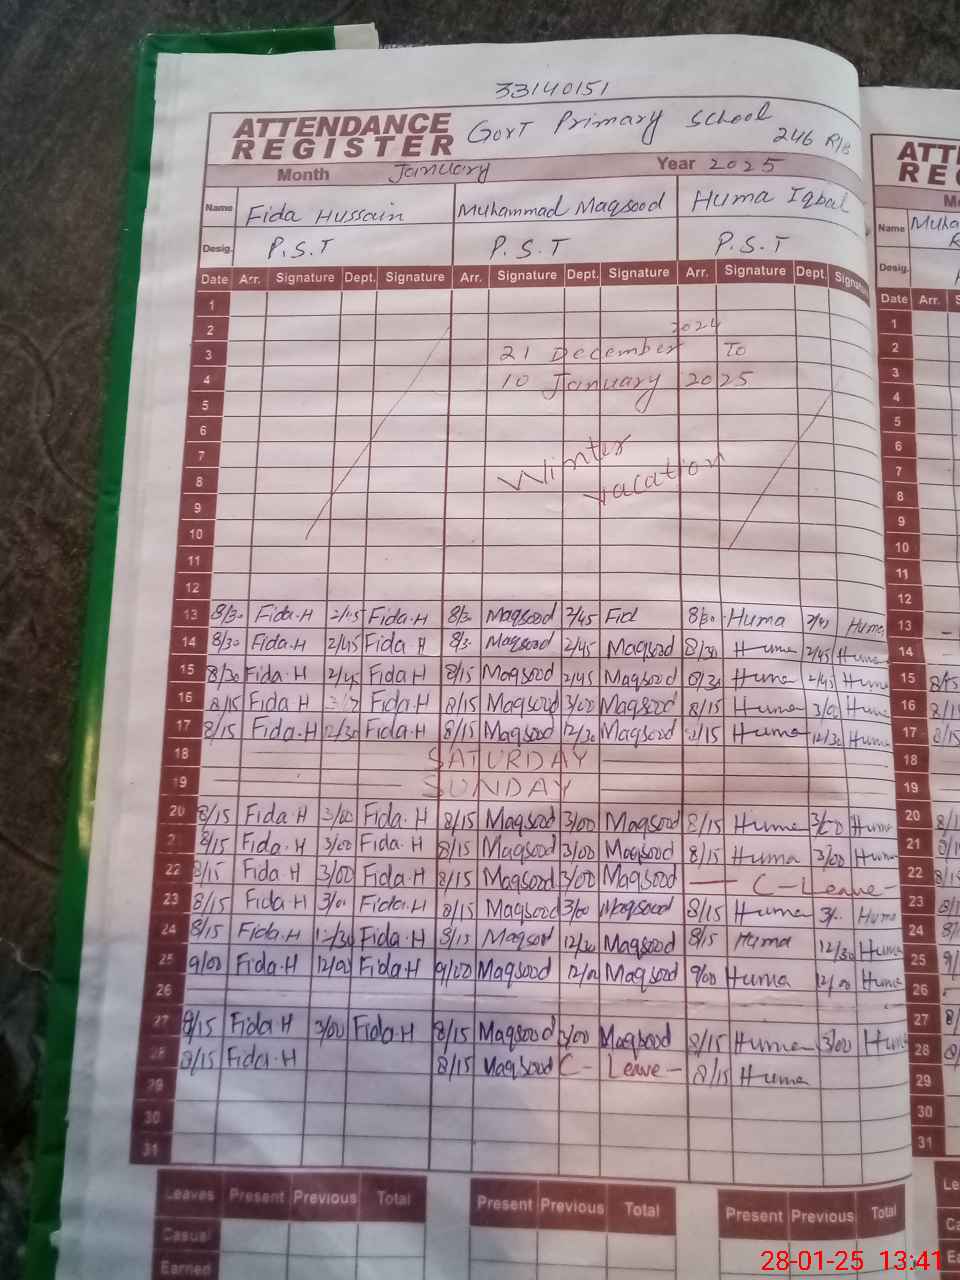 33140151
ATTENDANCE REGISTER Govt Primary School 246 R/B
Month January Year 2025
Name Fida Hussain Muhammad Maqsood Huma Iqbal
Desig. P.S.T P.S.T P.S.T
Date Arr. Signature Dept. Signature Arr. Signature Dept. Signature Arr. Signature Dept. Signature
1
2 2024
3 21 December To
4 10 January 2025
5
6
7 Winter
8 vacation
9
10
11
12
13 8/30 Fida.H 2/45 Fida.H 8/30 Maqsood 2/45 Fid 8/30 Huma 2/45 Huma
14 8/30 Fida.H 2/45 Fida.H 8/30 Maqsood 2/45 Maqsood 8/30 Huma 2/45 Huma
15 8/30 Fida.H 2/45 Fida.H 8/15 Maqsood 2/45 Maqsood 8/30 Huma 2/45 Huma
16 8/15 Fida H Fida.H 8/15 Maqsood 3/00 Maqsood 8/15 Huma 3/00 Huma
17 8/15 Fida.H 12/30 Fida.H 8/15 Maqsood 12/30 Maqsood 8/15 Huma 12/30 Huma
18 SATURDAY
19 SUNDAY
20 8/15 Fida.H 3/00 Fida.H 8/15 Maqsood 3/00 Maqsood 8/15 Huma 3/00 Huma
21 8/15 Fida.H 3/00 Fida.H 8/15 Maqsood 3/00 Maqsood 8/15 Huma 3/00 Huma
22 8/15 Fida H 3/00 Fida.H 8/15 Maqsood 3/00 Maqsood — C-Leave-
23 8/15 Fida.H 3/00 Fida.H 8/15 Maqsood 3/00 Maqsood 8/15 Huma 3/00 Huma
24 8/15 Fida.H 12/30 Fida.H 8/15 Maqsood 12/30 Maqsood 8/15 Huma 12/30 Huma
25 9/00 Fida.H 12/00 Fida.H 9/00 Maqsood 12/00 Maqsood 9/00 Huma 12/00 Huma
26
27 8/15 Fida H 3/00 Fida.H 8/15 Maqsood 3/00 Maqsood 8/15 Huma 3/00 Huma
28 8/15 Fida.H 8/15 Maqsood C- Leave- 8/15 Huma
29
30
31
Leaves Present Previous Total Present Previous Total Present Previous Total
Casual
Earned
Name
Desig.
Date Arr.
1
2
3
4
5
6
7
8
9
10
11
12
13
14
15
16
17
18
19
20
21
22
23
24
25
26
27
28
29
30
31
28-01-25 13:41